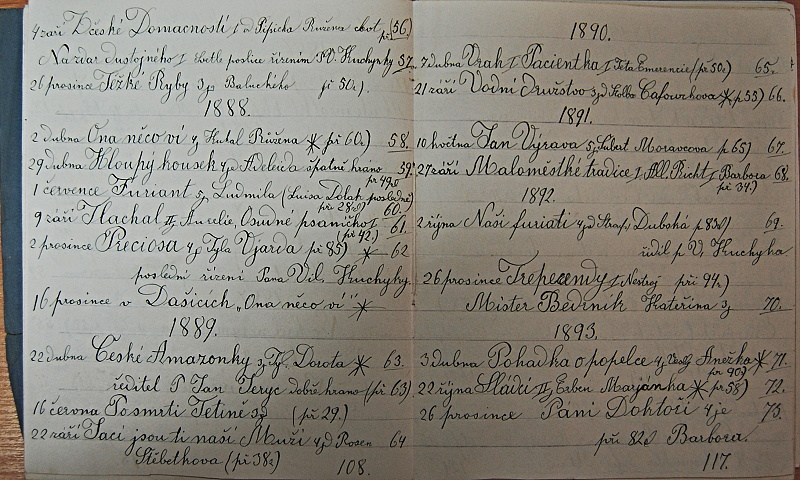 4 září Z české Domacnosti I od Pepicka Ružena
Na zdar dustojného I Betle poslice řízením P.V. Kuchynky 57.
26 prosince Težké Ryby 3j Baluckého př 50z).
1888.
2 dubna Ona něco ví 4j Hutal Růžena ✶ př 60z) 58.
29 dubna Hloupy kousek 4jd Adeleida špatně hráno 59.
př 49zl
1 července Furiant 5j Ludmila (Luisa Dolak posledně)
př 28zl) 60.
9 září Flachal II Aurelie, Osudné psaníčko I 61.
(př 42.)
2 prosince Preciosa 4jd Tyla Vjarda př 85) ✶ 62
poslední řízení Pana Vil. Kuchyky.
16 prosince v Dašicích „Ona něco ví" ✶
1889.
22 dubna České Amazonky 3j Tyl. Dorota ✶ 63.
ředitel P Jan Teryc dobře hrano (př 63)
16 června Posmrti Tetině 3j (př 29.)
22 září Jací jsou ti naší Muži 4jd Rosen 64
Stěbetkova (př 38z)
108.
1890.
7 dubna Vrah I Pacientka I Teta Emerencie (př 50z) 65.
21 září Vodní družstvo 3jd Kolba Cafourkova ✶ p 53) 66.
1891.
10 května Jan Výrava 5j Šubert Moravcova p 65) 67.
27 září Maloměstké tradice I All. Richt I Barbora 68.
př 34.)
1892.
2 října Naši furiati 4jd Dubská p 83zl) 69.
řídil p V. Kuchyka.
26 prosince Trepifendy I Nestroj při 94z)
Mister Bedrnik Kateřina 3j 70.
1893.
3 dubna Pohadka o popelce 4j Anežka ✶ 71.
př 90zl
22 října Sládci II Erben Marjánka ✶ př 58) 72.
26 prosince Páni Doktoři 4je 73.
při 82zl Barbora.
117.